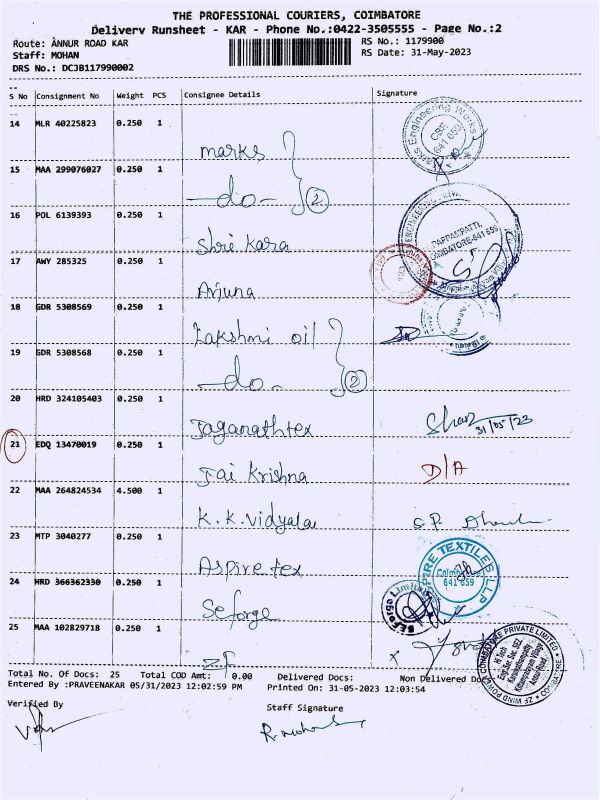 THE PROFESSIONAL COURIERS, COIMBATORE
Delivery Runsheet - KAR - Phone No.:0422-3505555 - Page No.:2
Route: ANNUR ROAD KAR RS No.: 1179900
Staff: MOHAN RS Date: 31-May-2023
DRS No.: DCJB117990002
S No Consignment No Weight PCS Consignee Details Signature
14 MLR 40225823 0.250 1
marks
15 MAA 299076027 0.250 1
-do- 2
16 POL 6139393 0.250 1
Shri Kara
17 AWY 285325 0.250 1
Arjuna
18 GDR 5308569 0.250 1
Lakshmi oil
19 GDR 5308568 0.250 1
-do- 2
20 HRD 324105403 0.250 1
Jaganathtex 31/05/23
21 EDQ 13470019 0.250 1
Jai Krishna D/A
22 MAA 264824534 4.500 1
K.K.Vidyala S.P
23 MTP 3040277 0.250 1
Aspire tex
24 HRD 366362330 0.250 1
Seforge
25 MAA 102829718 0.250 1
ZF
Total No. Of Docs: 25 Total COD Amt: 0.00 Delivered Docs: Non Delivered Docs
Entered By :PRAVEENAKAR 05/31/2023 12:02:59 PM Printed On: 31-05-2023 12:03:54
Verified By Staff Signature
Marks Engineering Works
CBE
641 659
COIMBATORE-641 659
ASPIRE TEXTILES LLP
641 659
ZF WIND POWER COIMBATORE PRIVATE LIMITED
Hi Tech
Annur Road